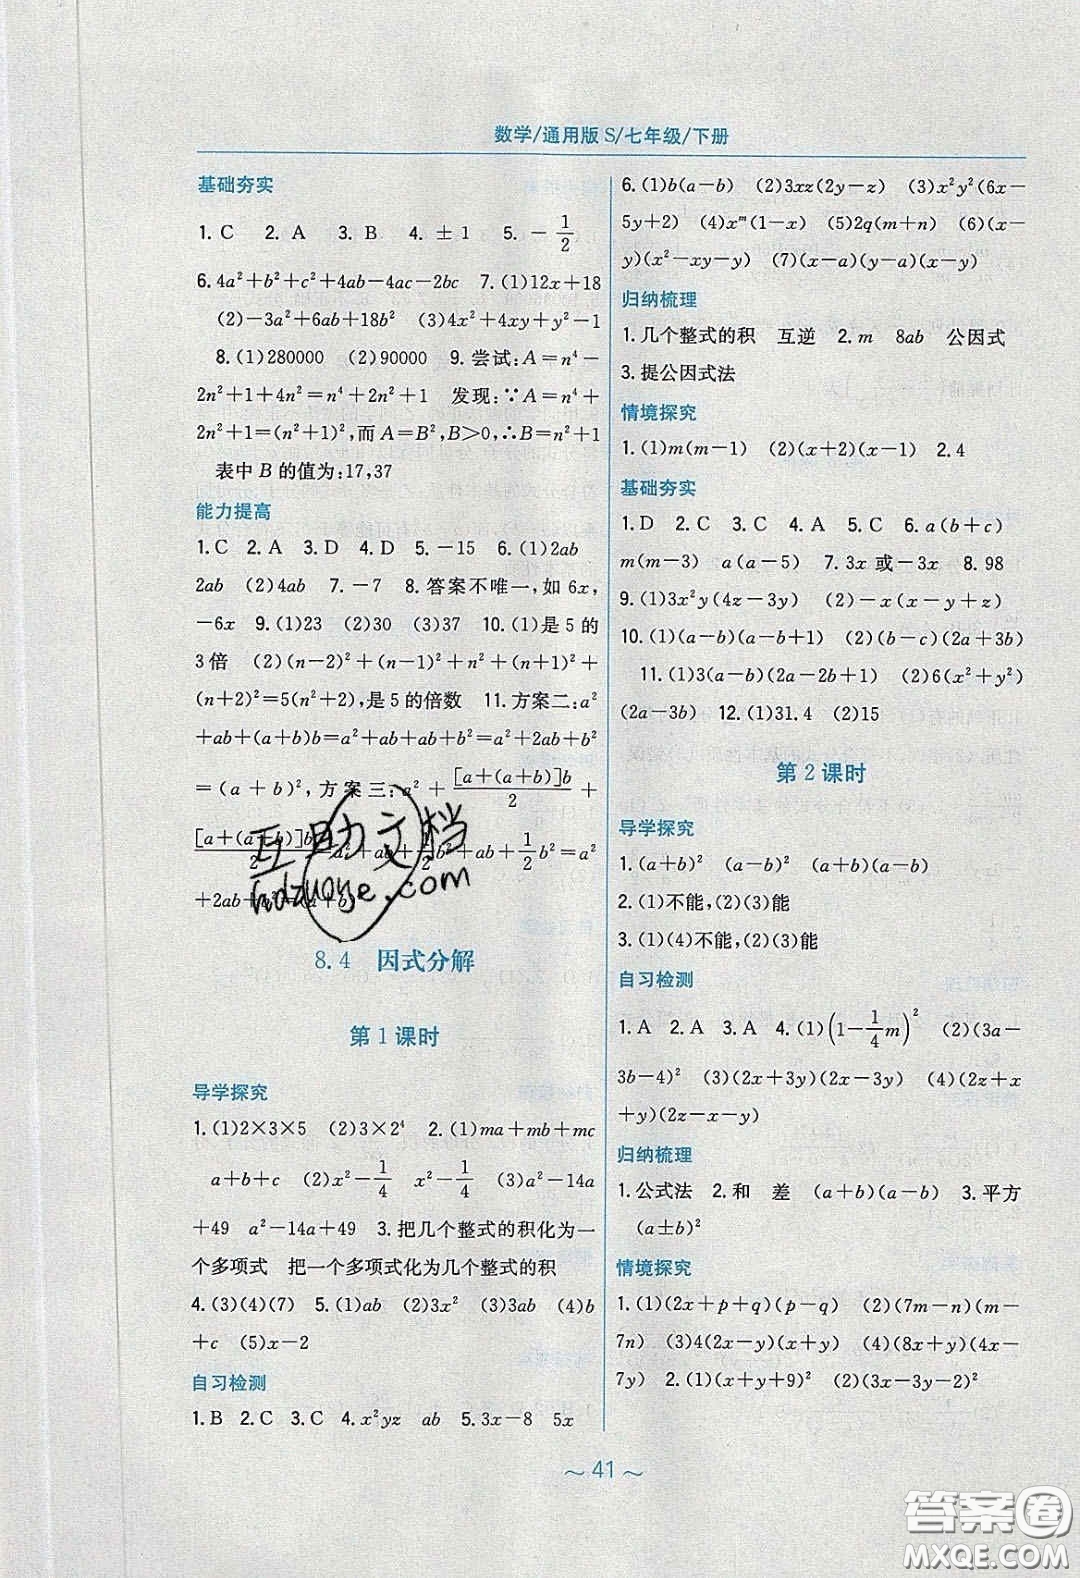 数学/通用版 S/七年级/下册
基础夯实
1. C 2. A 3. B 4. ±1 5. -1/2
6. 4a²+b²+c²+4ab-4ac-2bc 7. (1)12x+18
(2)-3a²+6ab+18b² (3)4x²+4xy+y²-1
8. (1)280000 (2)90000 9. 尝试:A=n⁴-
2n²+1+4n²=n⁴+2n²+1 发现:∵A=n⁴+
2n²+1=(n²+1)²,而 A=B²,B>0,∴B=n²+1
表中 B 的值为:17,37
能力提高
1. C 2. A 3. D 4. D 5. -15 6. (1)2ab
2ab (2)4ab 7. -7 8. 答案不唯一,如 6x,
-6x 9. (1)23 (2)30 (3)37 10. (1)是 5 的
3倍 (2)(n-2)²+(n-1)²+n²+(n+1)²+
(n+2)²=5(n²+2),是 5 的倍数 11. 方案二:a²
+ab+(a+b)b=a²+ab+ab+b²=a²+2ab+b²
=(a+b)²,方案三:a²+[a+(a+b)]b/2+
[a+(a+b)]b/2=a²+ab+1/2b²+ab+1/2b²=a²
+2ab+b²=(a+b)²
互助文档
hdzuoye.com
8.4 因式分解
第 1 课时
导学探究
1. (1)2×3×5 (2)3×2⁴ 2. (1)ma+mb+mc
a+b+c (2)x²-1/4 x²-1/4 (3)a²-14a
+49 a²-14a+49 3. 把几个整式的积化为一
个多项式 把一个多项式化为几个整式的积
4. (3)(4)(7) 5. (1)ab (2)3x² (3)3ab (4)b
+c (5)x-2
自习检测
1. B 2. C 3. C 4. x²yz ab 5. 3x-8 5x
6. (1)b(a-b) (2)3xz(2y-z) (3)x²y²(6x-
5y+2) (4)xᵐ(1-x) (5)2q(m+n) (6)(x-
y)(x²-xy-y) (7)(x-a)(y-a)(x-y)
归纳梳理
1. 几个整式的积 互逆 2. m 8ab 公因式
3. 提公因式法
情境探究
1. (1)m(m-1) (2)(x+2)(x-1) 2. 4
基础夯实
1. D 2. C 3. C 4. A 5. C 6. a(b+c)
m(m-3) a(a-5) 7. 3x 或-3x 8. 98
9. (1)3x²y(4z-3y) (2)-x(x-y+z)
10. (1)(a-b)(a-b+1) (2)(b-c)(2a+3b)
11. (1)3(a-b)(2a-2b+1) (2)6(x²+y²)
(2a-3b) 12. (1)31.4 (2)15
第 2 课时
导学探究
1. (a+b)² (a-b)² (a+b)(a-b)
2. (1)不能,(2)(3)能
3. (1)(4)不能,(2)(3)能
自习检测
1. A 2. A 3. A 4. (1)(1-1/4m)² (2)(3a-
3b-4)² (3)(2x+3y)(2x-3y) (4)(2z+x
+y)(2z-x-y)
归纳梳理
1. 公式法 2. 和 差 (a+b)(a-b) 3. 平方
(a±b)²
情境探究
1. (1)(2x+p+q)(p-q) (2)(7m-n)(m-
7n) (3)4(2x-y)(x+y) (4)(8x+y)(4x-
7y) 2. (1)(x+y+9)² (2)(3x-y-2)²
~ 41 ~
答案圈
MXQE.COM